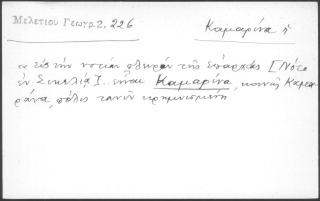 Μελετίου Γεωγρ. 2, 226
Καμαρίνα ἡ
« εἰς τὴν νοτίαν πλευρὰν τῆς ἐπαρχίας [Νότο
ἐν Σικελίᾳ].. εἶναι Καμαρίνα, κοινῶς Καμα
ράνα, πόλις τανῦν κρημνισμένη